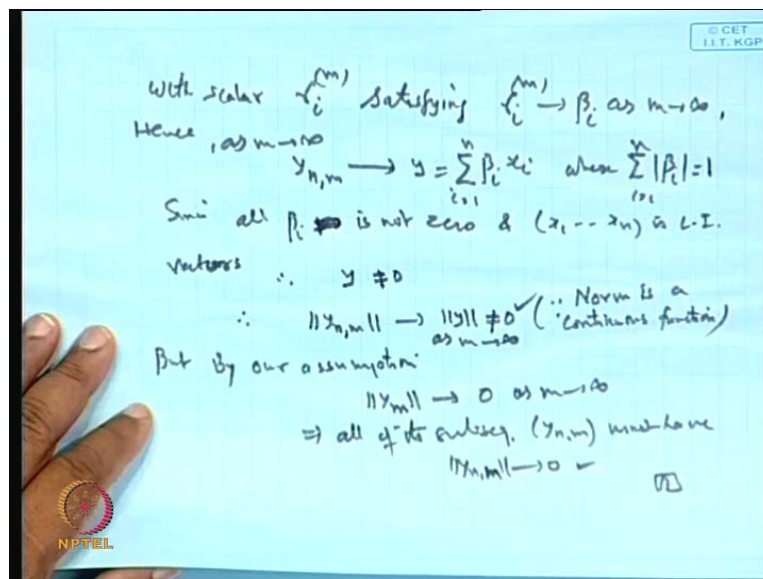 © CET
I.I.T. KGP
With scalar γ_i^(m) satisfying γ_i^(m) → β_i as m→∞,
Hence, as m→∞
y_{n,m} → y = Σ_{i=1}^{n} β_i x_i where Σ_{i=1}^{n} |β_i| = 1
Since all β_i is not zero & (x_1 -- x_n) is L.I.
vectors ∴ y ≠ 0
∴ ||y_{n,m}|| → ||y|| ≠ 0 ✓ (∵ Norm is a
as m→∞ continuous function)
But By our assumption
||y_m|| → 0 as m→∞
⇒ all of its subseq. (y_{n,m}) must have
||y_{n,m}|| → 0 ✓
NPTEL